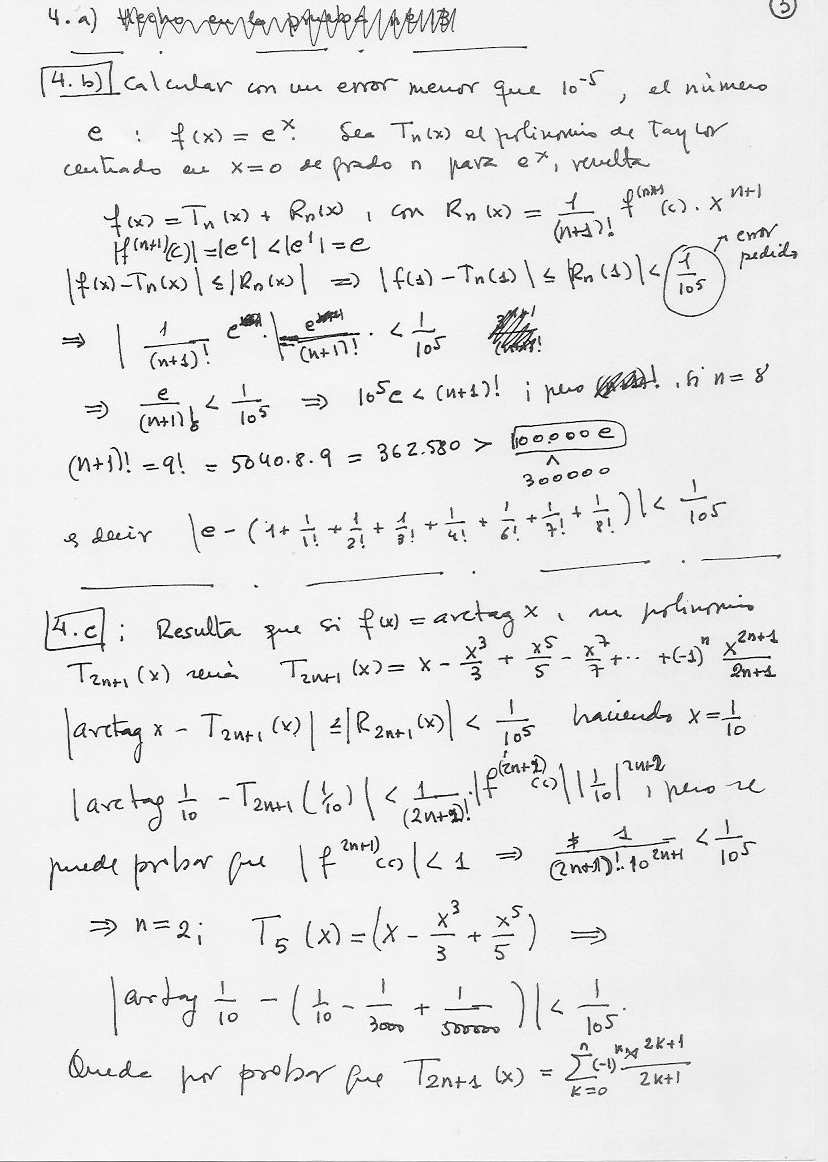 3
4. a) Hecho en la prueba nº 3
4. b) Calcular con un error menor que 10^-5, el número
e : f(x) = e^x. Sea Tn(x) el polinomio de Taylor
centrado en x=0 de grado n para e^x, resulta
f(x) = Tn(x) + Rn(x), con Rn(x) = 1/(n+1)! f^(n+1)(c) · x^n+1
|f^(n+1)(c)| = |e^c| < |e^1| = e
|f(x) - Tn(x)| ≤ |Rn(x)| => |f(1) - Tn(1)| ≤ |Rn(1)| < 1/10^5 ↗ error pedido
=> | 1/(n+1)! e | = e/(n+1)! · < 1/10^5
=> e/(n+1)! < 1/10^5 => 10^5 e < (n+1)! ; pero , si n = 8
(n+1)! = 9! = 5040.8.9 = 362.580 > 100.000 e
^
300000
es decir |e - (1 + 1/1! + 1/2! + 1/3! + 1/4! + 1/6! + 1/7! + 1/8!)| < 1/10^5
4.c ; Resulta que si f(x) = arctag x, su polinomio
T2n+1(x) será T2n+1(x) = x - x^3/3 + x^5/5 - x^7/7 + ... + (-1)^n x^2n+1/2n+1
|arctag x - T2n+1(x)| ≤ |R2n+1(x)| < 1/10^5 haciendo x = 1/10
|arctag 1/10 - T2n+1(1/10)| < 1/(2n+2)! · |f^(2n+2)(c)| |1/10|^2n+2, pero se
puede probar que |f^2n+1)(c)| < 1 => 1/(2n+1)!·10^2n+1 < 1/10^5
=> n = 2; T5(x) = (x - x^3/3 + x^5/5) =>
|arctag 1/10 - (1/10 - 1/3000 + 1/500000)| < 1/10^5.
Queda por probar que T2n+1(x) = Σ k=0 n (-1)^k x^2k+1/2k+1